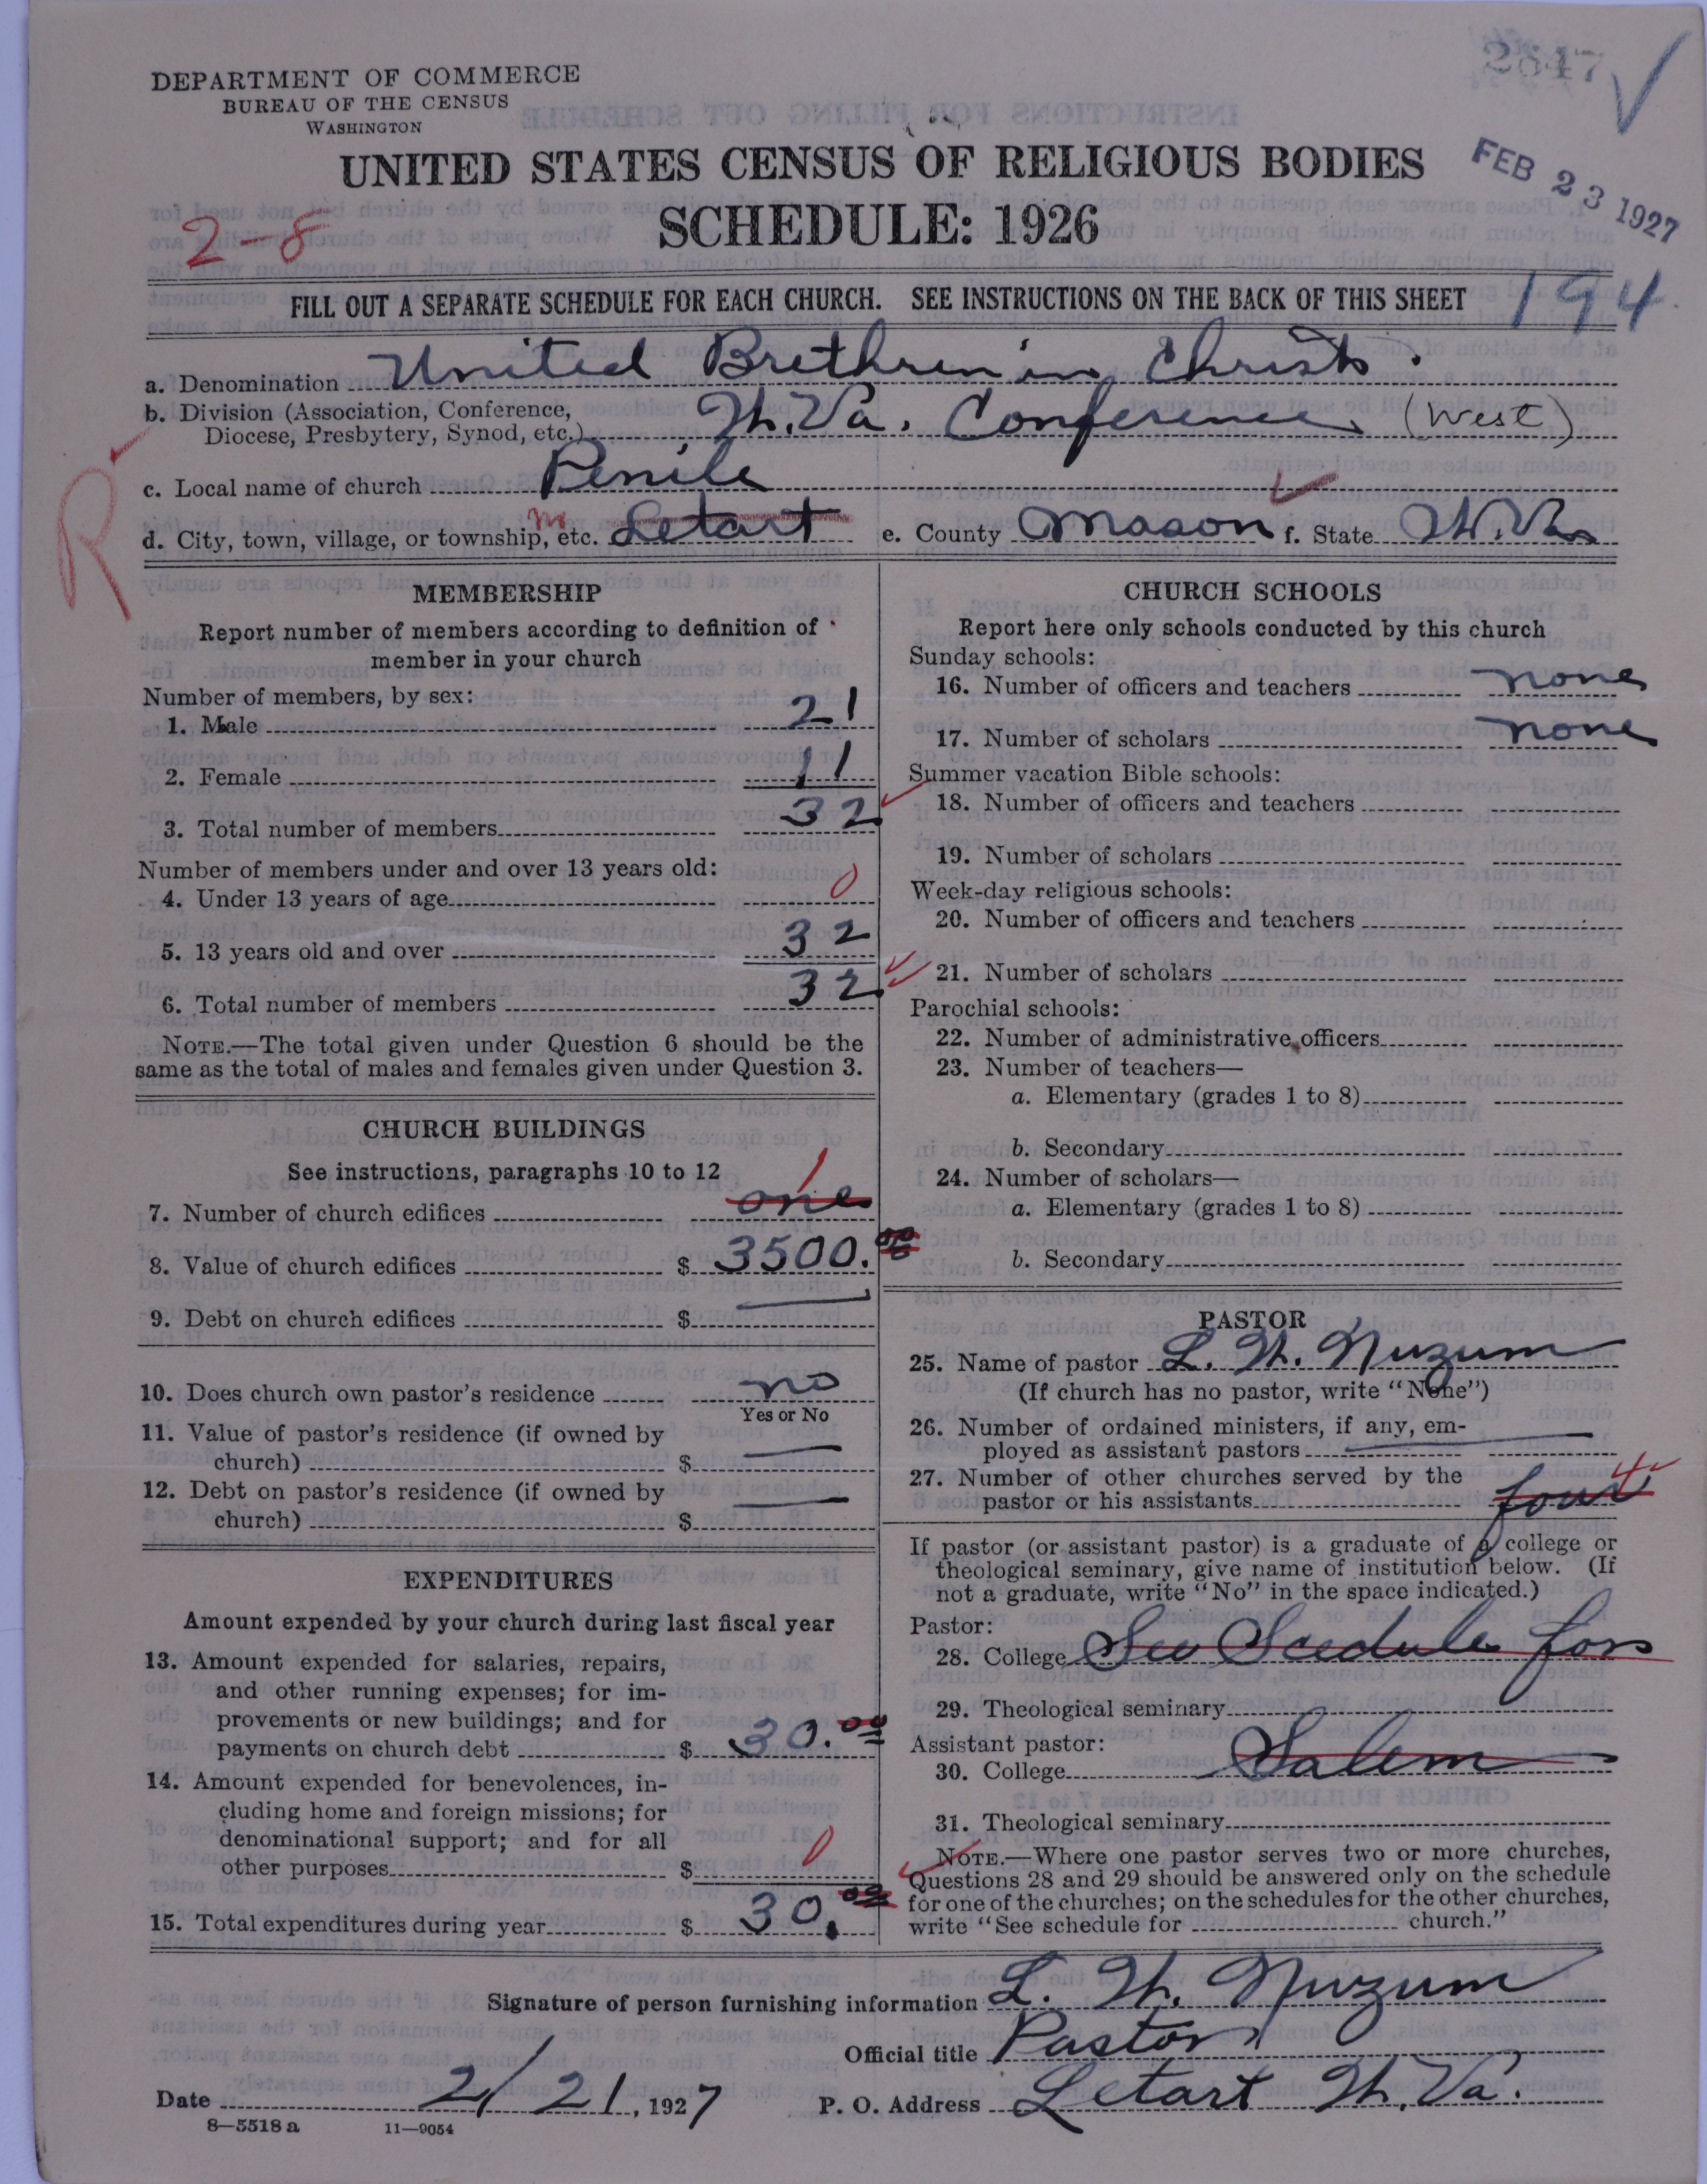 2647
DEPARTMENT OF COMMERCE
BUREAU OF THE CENSUS
WASHINGTON
FEB 23 1927
UNITED STATES CENSUS OF RELIGIOUS BODIES
SCHEDULE: 1926
2-8
FILL OUT A SEPARATE SCHEDULE FOR EACH CHURCH. SEE INSTRUCTIONS ON THE BACK OF THIS SHEET
194
a. Denomination United Brethren in Christ.
b. Division (Association, Conference,
Diocese, Presbytery, Synod, etc.) W. Va. Conference (West)
R
c. Local name of church Penile
d. City, town, village, or township, etc. Letart e. County Mason f. State W. Va
MEMBERSHIP
Report number of members according to definition of
member in your church
Number of members, by sex:
1. Male 21
2. Female 11
3. Total number of members 32
Number of members under and over 13 years old:
4. Under 13 years of age 0
5. 13 years old and over 32
6. Total number of members 32
NOTE.—The total given under Question 6 should be the
same as the total of males and females given under Question 3.
CHURCH BUILDINGS
See instructions, paragraphs 10 to 12
7. Number of church edifices one 1
8. Value of church edifices $ 3500.00
9. Debt on church edifices $ —
10. Does church own pastor's residence no
Yes or No
11. Value of pastor's residence (if owned by
church) $ —
12. Debt on pastor's residence (if owned by
church) $ —
EXPENDITURES
Amount expended by your church during last fiscal year
13. Amount expended for salaries, repairs,
and other running expenses; for im-
provements or new buildings; and for
payments on church debt $ 30.00
14. Amount expended for benevolences, in-
cluding home and foreign missions; for
denominational support; and for all
other purposes $ 0
15. Total expenditures during year $ 30.00
CHURCH SCHOOLS
Report here only schools conducted by this church
Sunday schools:
16. Number of officers and teachers none
17. Number of scholars none
Summer vacation Bible schools:
18. Number of officers and teachers
19. Number of scholars
Week-day religious schools:
20. Number of officers and teachers
21. Number of scholars
Parochial schools:
22. Number of administrative officers
23. Number of teachers—
a. Elementary (grades 1 to 8)
b. Secondary
24. Number of scholars—
a. Elementary (grades 1 to 8)
b. Secondary
PASTOR
25. Name of pastor L. W. Nuzum
(If church has no pastor, write "None")
26. Number of ordained ministers, if any, em-
ployed as assistant pastors —
27. Number of other churches served by the
pastor or his assistants four 4
If pastor (or assistant pastor) is a graduate of a college or
theological seminary, give name of institution below. (If
not a graduate, write "No" in the space indicated.)
Pastor:
28. College See Scedule for
29. Theological seminary
Assistant pastor:
30. College Salem
31. Theological seminary
NOTE.—Where one pastor serves two or more churches,
Questions 28 and 29 should be answered only on the schedule
for one of the churches; on the schedules for the other churches,
write "See schedule for church."
Signature of person furnishing information L. W. Nuzum
Official title Pastor
Date 2/21, 1927 P. O. Address Letart W. Va.
8—5518 a 11—9054